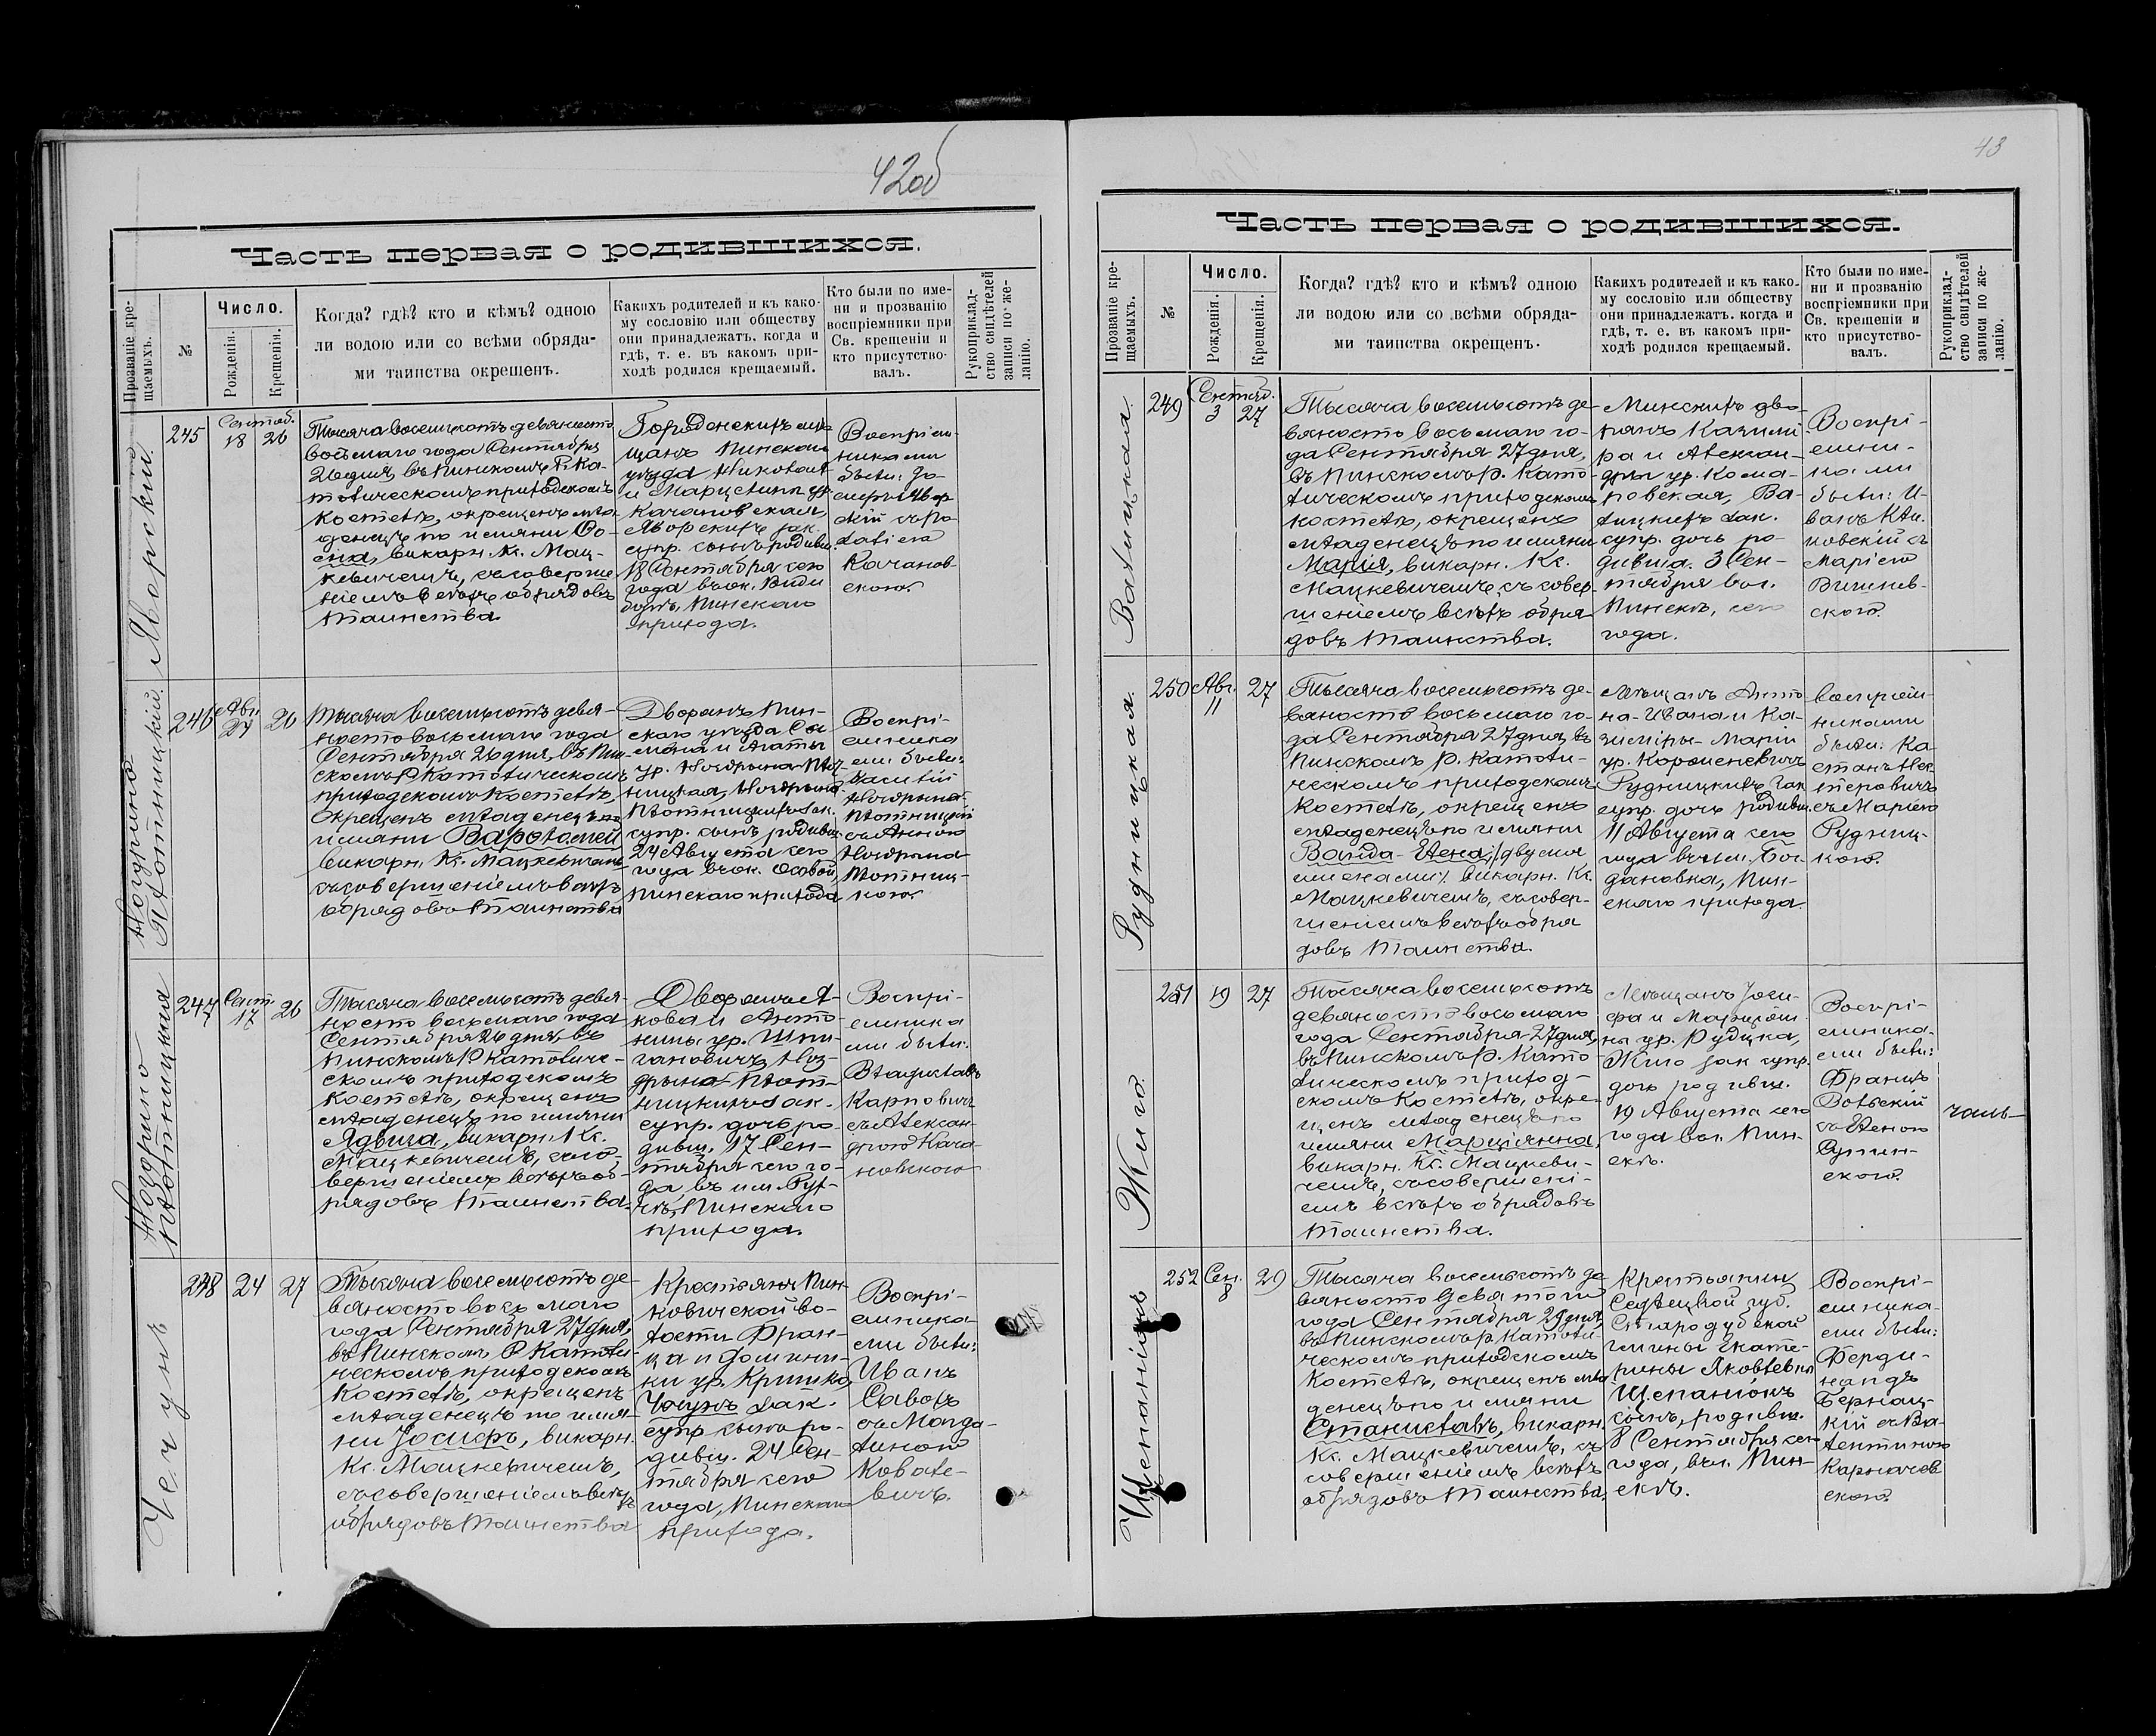 42об
Часть первая о родившихся.
Прозваніе кре-
щаемыхъ.
№
Число.
Рожденія.
Крещенія.
Когда? гдѣ? кто и кѣмъ? одною
ли водою или со всѣми обряда-
ми таинства окрещенъ.
Какихъ родителей и къ како-
му сословію или обществу
они принадлежатъ, когда и
гдѣ, т. е. въ какомъ при-
ходѣ родился крещаемый.
Кто были по име-
ни и прозванію
воспріемники при
Св. крещеніи и
кто присутство-
валъ.
Рукоприклад-
ство свидѣтелей
записи по же-
ланію.
Яворскій.
245
Сентяб.
18 26
Тысяча восемьсотъ девяносто
восьмаго года Сентября
26 дня, въ Пинскомъ Р. Ка-
толическомъ приходскомъ
костелѣ, окрещенъ мла-
денецъ по имени
викарн. Кс. Мац-
кевичемъ, съ соверше
ніемъ всѣхъ обрядовъ
таинства.
Городенскихъ мѣ
щанъ Пинскаго
уѣзда Николая
и Марцелины ур.
Качановская
Яворскихъ зак.
супр. сынъ родивш.
18 Сентября сего
года въ ок.
Пинскаго
прихода.
Воспріем-
никами
были:
Явор
скій съ
Качанов-
скою.
Ногдрино
Плотницкій.
246
Авг.
24
26
Тысяча восемьсотъ девя-
носто восьмаго года
Сентября 26 дня, въ Пин
скомъ Р. Католическомъ
приходскомъ костелѣ,
окрещенъ младенецъ по
имени Варѳоломей
викарн. Кс. Мацкевичемъ
съ совершеніемъ всѣхъ
обрядовъ таинства
Дворянъ Пин-
скаго уѣзда
и Агаты
ур.
ницкая,
Плотницкихъ зак.
супр. сынъ родивш.
24 Августа сего
года въ ок. Особой,
Пинскаго прихода
Воспрі-
емника
ми были:
Василій
Плотницкій
съ Анною
Плотниц-
кою.
Плотницкая
247
Сент.
17
26
Тысяча восемьсотъ девя-
носто восьмаго года
Сентября 26 дня, въ
Пинскомъ Р. Католиче-
скомъ приходскомъ
костелѣ, окрещенъ
младенецъ по имени
Ядвига, викарн. Кс.
Мацкевичемъ, съ со-
вершеніемъ всѣхъ об-
рядовъ таинства.
Дворянъ
кова и Анто-
нины ур. Шпи-
гановичъ
Плот-
ницкихъ зак.
супр. дочь ро-
дивш. 17 Сен-
тября сего го-
да въ им.
Пинскаго
прихода.
Воспрі-
емника
ми были:
Владиславъ
Карповичъ
съ Алексан-
дрою Кача-
новскою
Чечунъ
248
24
27
Тысяча восемьсотъ де-
вяносто восьмаго
года Сентября 27 дня,
въ Пинскомъ Р. Католи-
ческомъ приходскомъ
костелѣ, окрещенъ
младенецъ по име-
ни Іосифъ, викарн.
Кс. Мацкевичемъ,
съ совершеніемъ всѣхъ
обрядовъ таинства
Крестьянъ Пин-
ковичской во-
лости Фран-
ца и Домини-
ки ур. Кришко
Чечунъ зак.
супр. сынъ ро-
дивш. 24 Сен-
тября сего
года, Пинскаго
прихода.
Воспрі-
емника
ми были:
Иванъ
Саволъ
съ Магда-
линою
Ковале-
вичъ.
43
Часть первая о родившихся.
Прозваніе кре-
щаемыхъ.
№
Число.
Рожденія.
Крещенія.
Когда? гдѣ? кто и кѣмъ? одною
ли водою или со всѣми обряда-
ми таинства окрещенъ.
Какихъ родителей и къ како-
му сословію или обществу
они принадлежатъ. когда и
гдѣ, т. е. въ какомъ при-
ходѣ родился крещаемый.
Кто были по име-
ни и прозванію
воспріемники при
Св. крещеніи и
кто присутство-
валъ.
Рукоприклад-
ство свидѣтелей
записи по же-
ланію.
Валицкая.
249
Сентяб.
3 27
Тысяча восемьсотъ де-
вяносто восьмаго го-
да Сентября 27 дня,
въ Пинскомъ Р. Като-
лическомъ приходскомъ
костелѣ, окрещенъ
младенецъ по имени
Марія, викарн. Кс.
Мацкевичемъ, съ совер-
шеніемъ всѣхъ обря-
довъ таинства.
Минскихъ дво-
рянъ Казими-
ра и Алексан-
дры ур. Кома-
ровская, Ва-
лицкихъ зак.
супр. дочь ро-
дивша. 3 Сен-
тября въ г.
Пинскѣ, сего
года.
Воспрі-
емни-
ками
были: И-
ванъ Кли-
новскій съ
Маріею
Вишнев-
скою.
Рудницкая.
250
Авг.
11
27
Тысяча восемьсотъ де-
вяносто восьмаго го-
да Сентября 27 дня, въ
Пинскомъ Р. Католи-
ческомъ приходскомъ
костелѣ, окрещенъ
младенецъ по имени
Ванда-Елена /двумя
именами/, викарн. Кс.
Мацкевичемъ, съ совер-
шеніемъ всѣхъ обря
довъ таинства.
Мѣщанъ Анто
на-Ивана и Ка-
зиміры-Маріи
ур. Короленевичъ
Рудницкихъ зак
супр. дочь родивш.
11 Августа сего
года въ им. Бог-
дановка, Пин-
скаго прихода.
воспріем-
никами
были: Ка
етанъ Нес
теровичъ
съ Маріею
Рудниц-
кою.
Жиго.
251
19
27
Тысяча восемьсотъ
девяносто восьмаго
года Сентября 27 дня,
въ Пинскомъ Р. Като-
лическомъ приход-
скомъ костелѣ, окре-
щенъ младенецъ по
имени Марціянна,
викарн. Кс. Мацкеви-
чемъ, съ совершені-
емъ всѣхъ обрядовъ
таинства.
Мѣщанъ Іоси-
фа и
ны ур. Рудцка,
Жиго зак. супр.
дочь родивш.
19 Августа сего
года въ г. Пин-
скѣ.
Воспрі-
емника-
ми были:
Францъ
Вольскій
съ Еленою
скою.
Щепаніюкъ
252
Сен.
8
29
Тысяча восемьсотъ де
вяносто девятаго
года Сентября 29 дня
въ Пинскомъ Р. Католи-
ческомъ приходскомъ
костелѣ, окрещенъ мла
денецъ по имени
Станиславъ, викарн.
Кс. Мацкевичемъ, съ
совершеніемъ всѣхъ
обрядовъ таинства,
Крестьянин
Сѣдлецкой губ.
Стародубской
гмины Екате-
рины Яковлевны
Щепаніюкъ
сынъ, родивш.
8 Сентября сего
года, въ г. Пин-
скѣ.
Воспрі-
емника-
ми были:
Ферди-
нандъ
Бернац-
кій съ Ва-
лентиною
Карначев
скою.